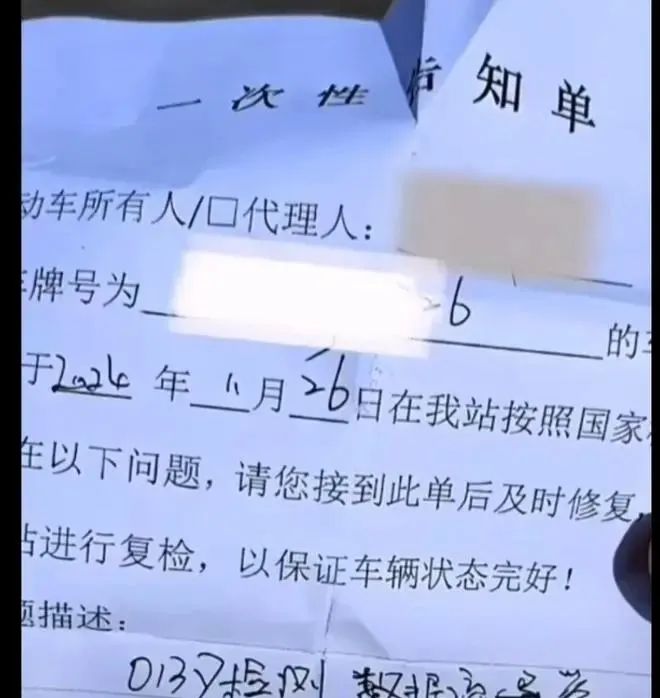 一次性告知单
动车所有人/□代理人：
车牌号为 26 的车
于2024年11月26日在我站按照国家
在以下问题，请您接到此单后及时修复，
站进行复检，以保证车辆状态完好！
题描述：
检测 数据